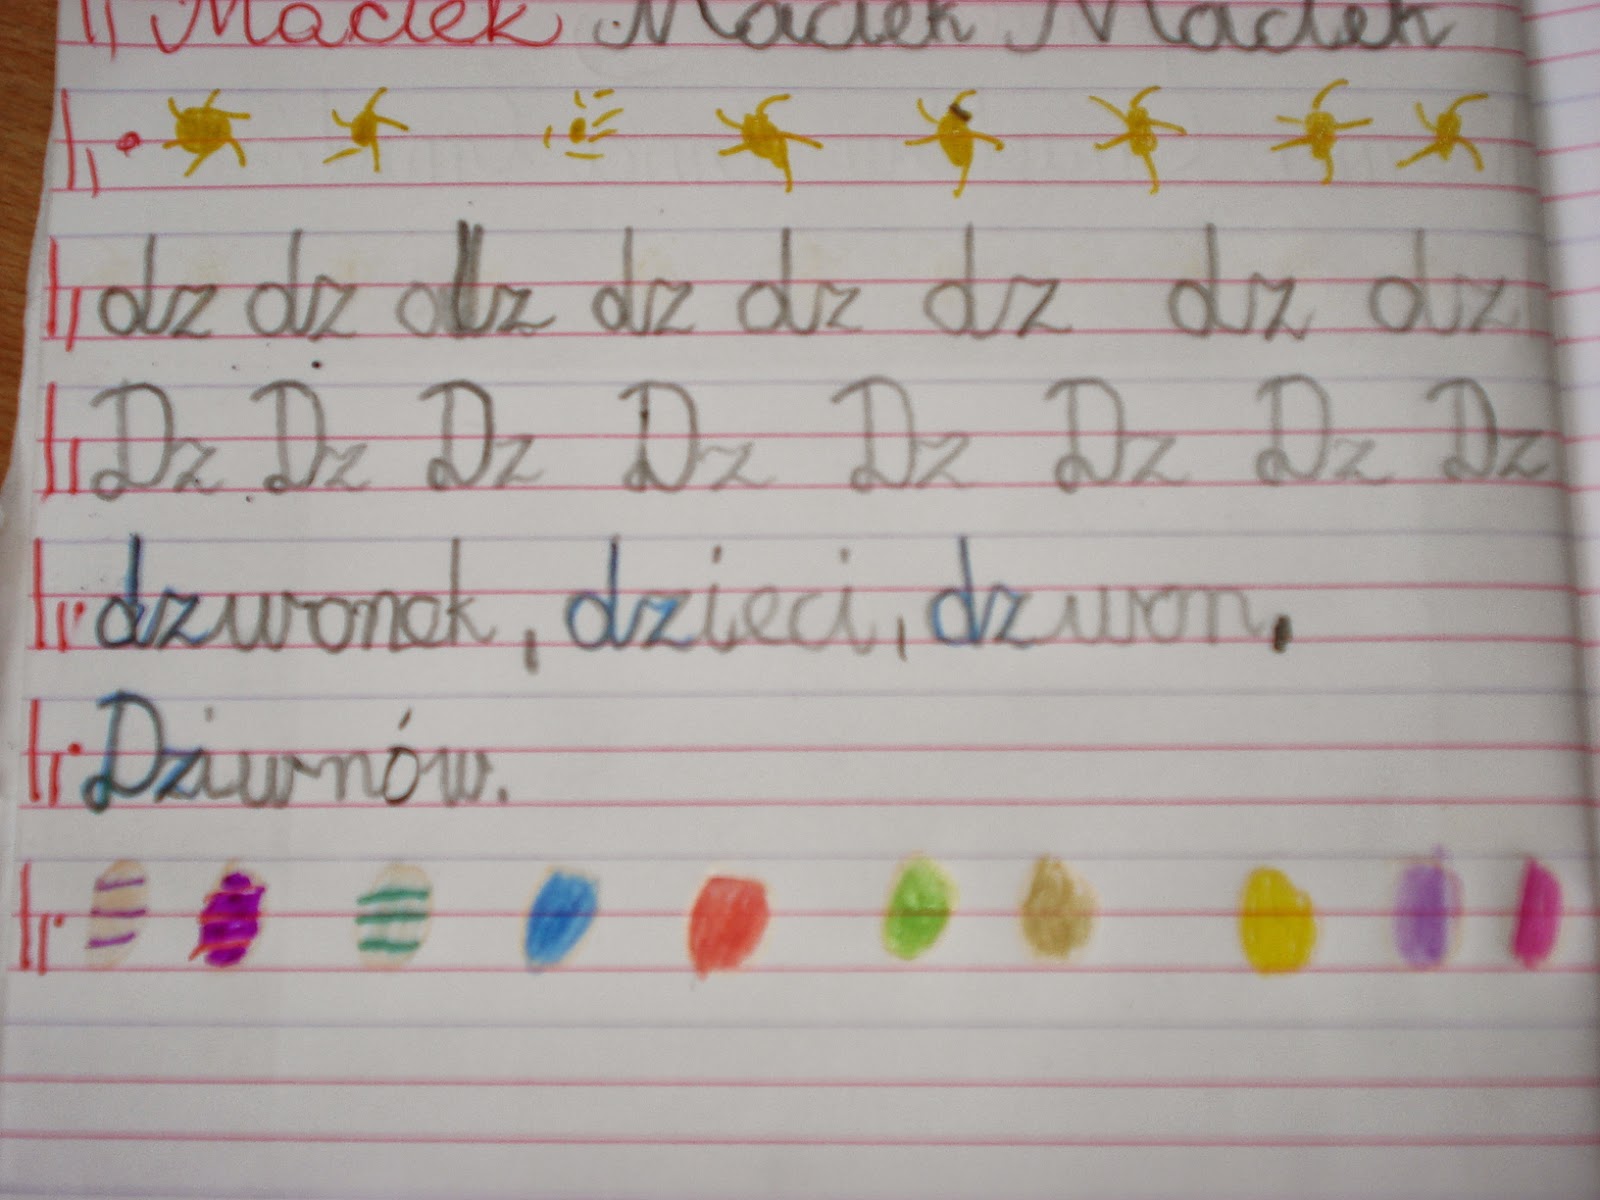 Maciek Maciek Maciek
dz dz dz dz dz dz dz dz
Dz Dz Dz Dz Dz Dz Dz Dz
dzwonek, dzieci, dzwon.
Dziwnów.